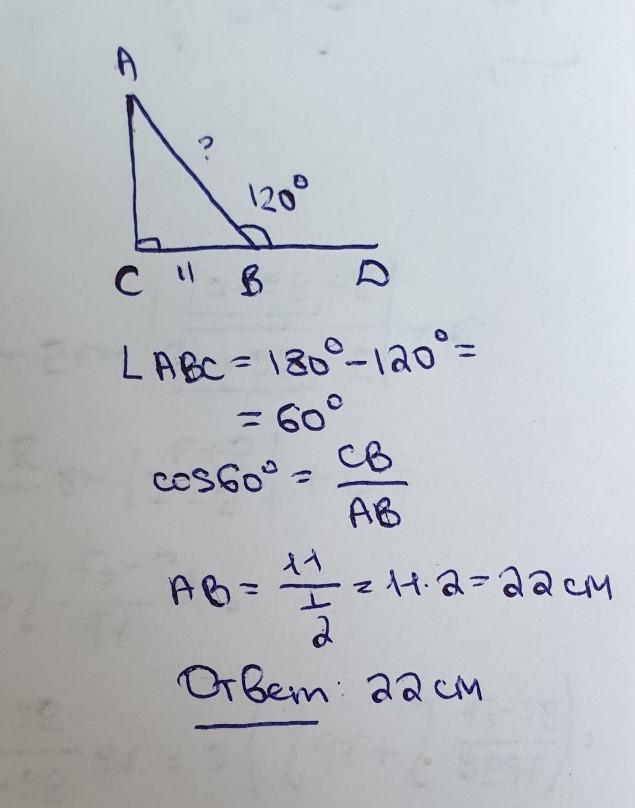 A
?
120°
C 11 B D
∠ABC = 180° - 120° =
= 60°
cos60° = CB/AB
AB = 11/(1/2) = 11·2 = 22 см
Ответ: 22 см